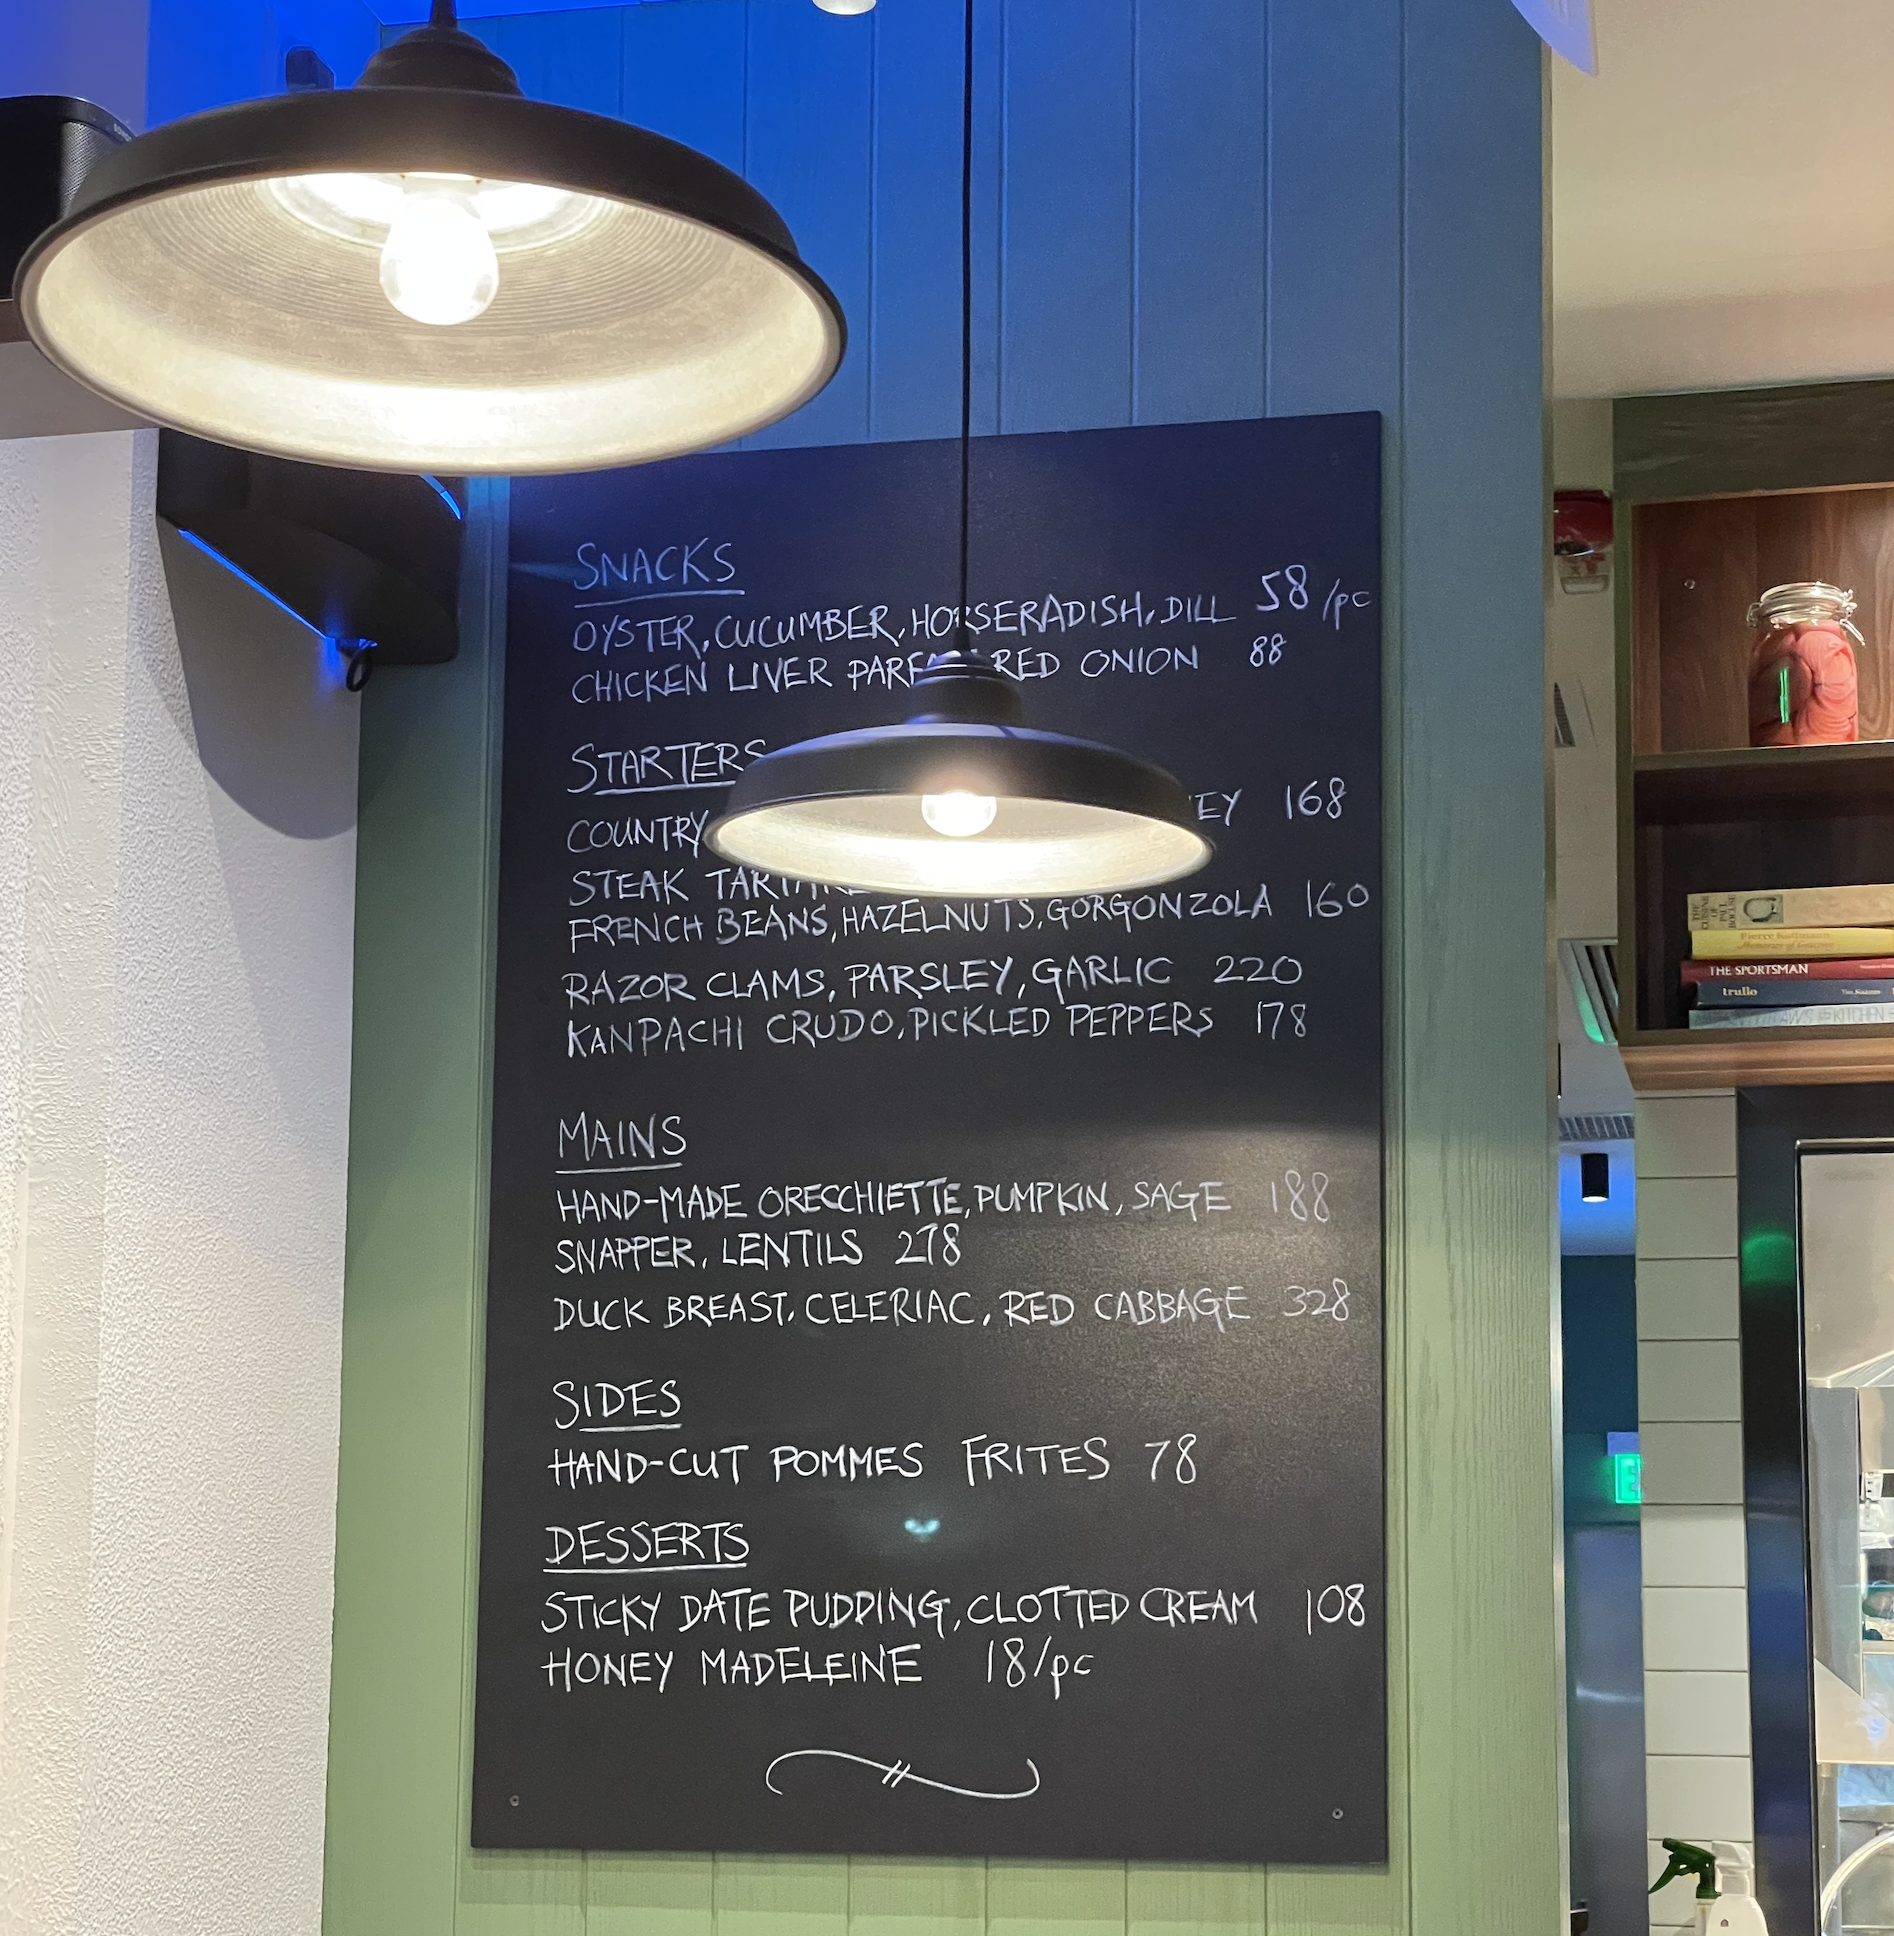 SNACKS
OYSTER, CUCUMBER, HORSERADISH, DILL 58/pc
CHICKEN LIVER RED ONION 88
STARTERS
COUNTRY 168
STEAK
FRENCH BEANS, HAZELNUTS, GORGONZOLA 160
RAZOR CLAMS, PARSLEY, GARLIC 220
KANPACHI CRUDO, PICKLED PEPPERS 178
MAINS
HAND-MADE ORECCHIETTE, PUMPKIN, SAGE 188
SNAPPER, LENTILS 278
DUCK BREAST, CELERIAC, RED CABBAGE 328
SIDES
HAND-CUT POMMES FRITES 78
DESSERTS
STICKY DATE PUDDING, CLOTTED CREAM 108
HONEY MADELEINE 18/pc
THE SPORTSMAN
trullo